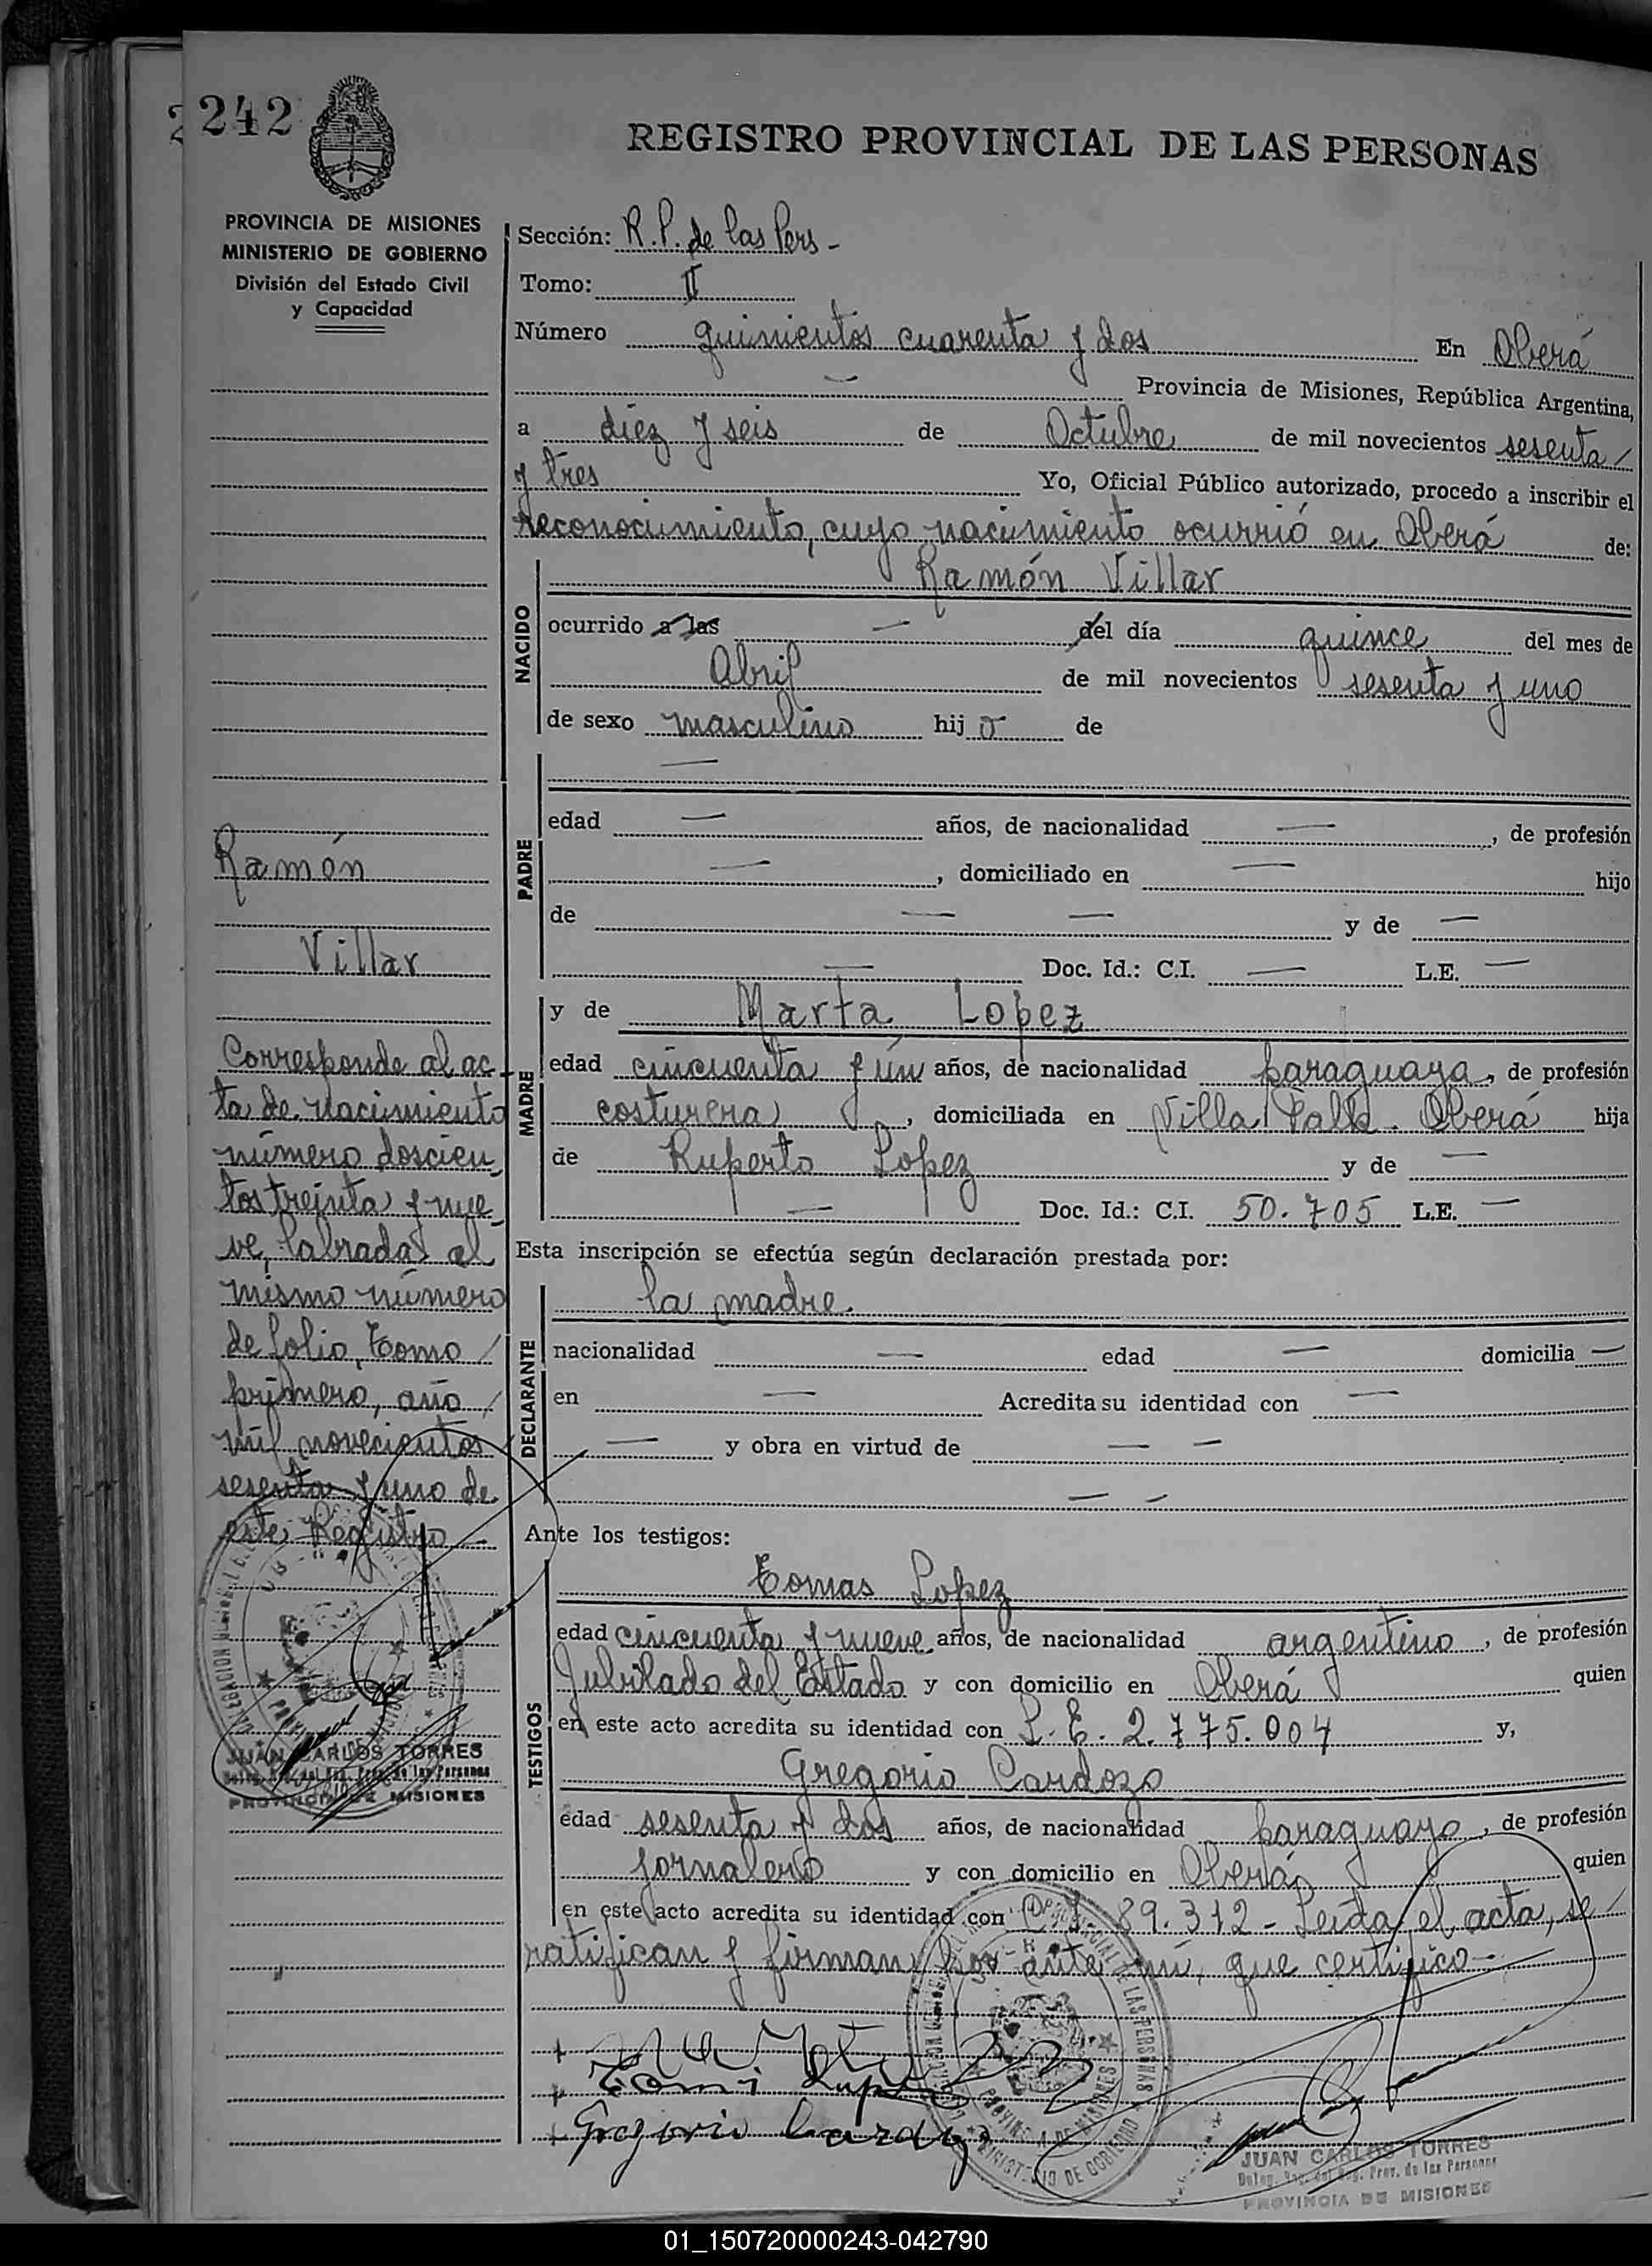 242
REGISTRO PROVINCIAL DE LAS PERSONAS
PROVINCIA DE MISIONES
MINISTERIO DE GOBIERNO
División del Estado Civil
y Capacidad
Sección: R.P. de las Pers -
Tomo: II
Número quinientos cuarenta y dos En Oberá
— Provincia de Misiones, República Argentina,
a diez y seis de Octubre de mil novecientos sesenta /
y tres Yo, Oficial Público autorizado, procedo a inscribir el
reconocimiento, cuyo nacimiento ocurrió en Oberá de:
NACIDO
Ramón Villar
ocurrido a las — del día quince del mes de
Abril de mil novecientos sesenta y uno
de sexo masculino hijo de
PADRE
—
edad — años, de nacionalidad —, de profesión
—, domiciliado en — hijo
de — — y de —
— Doc. Id.: C.I. — L.E. —
MADRE
y de Marta Lopez
edad cincuenta y un años, de nacionalidad paraguaya, de profesión
costurera, domiciliada en Villa Falk. Oberá hija
de Ruperto Lopez y de —
— Doc. Id.: C.I. 50.705 L.E. —
Esta inscripción se efectúa según declaración prestada por:
DECLARANTE
la madre.
nacionalidad — edad — domicilia —
en — Acredita su identidad con —
— y obra en virtud de — —
— —
Ante los testigos:
TESTIGOS
Tomas Lopez
edad cincuenta y nueve años, de nacionalidad argentino, de profesión
Jubilado del Estado y con domicilio en Oberá quien
en este acto acredita su identidad con L.E. 2.775.004 y,
Gregorio Cardozo
edad sesenta y dos años, de nacionalidad paraguayo, de profesión
jornalero y con domicilio en Oberá quien
en este acto acredita su identidad con C.I. 89.312 - Leída el acta, se /
ratifican y firman por ante mí, que certifico -
Ramón
Villar
Corresponde al ac-
ta de nacimiento
número doscien-
tos treinta y nue-
ve, labrada al
mismo número
de folio, tomo /
primero, año /
mil novecientos
sesenta y uno de
este Registro -
JUAN CARLOS TORRES
PROVINCIA DE MISIONES
Gregorio Cardozo
PROVINCIA DE MISIONES
MINISTERIO DE GOBIERNO
JUAN CARLOS TORRES
Prov. de las Personas
PROVINCIA DE MISIONES
01_150720000243-042790